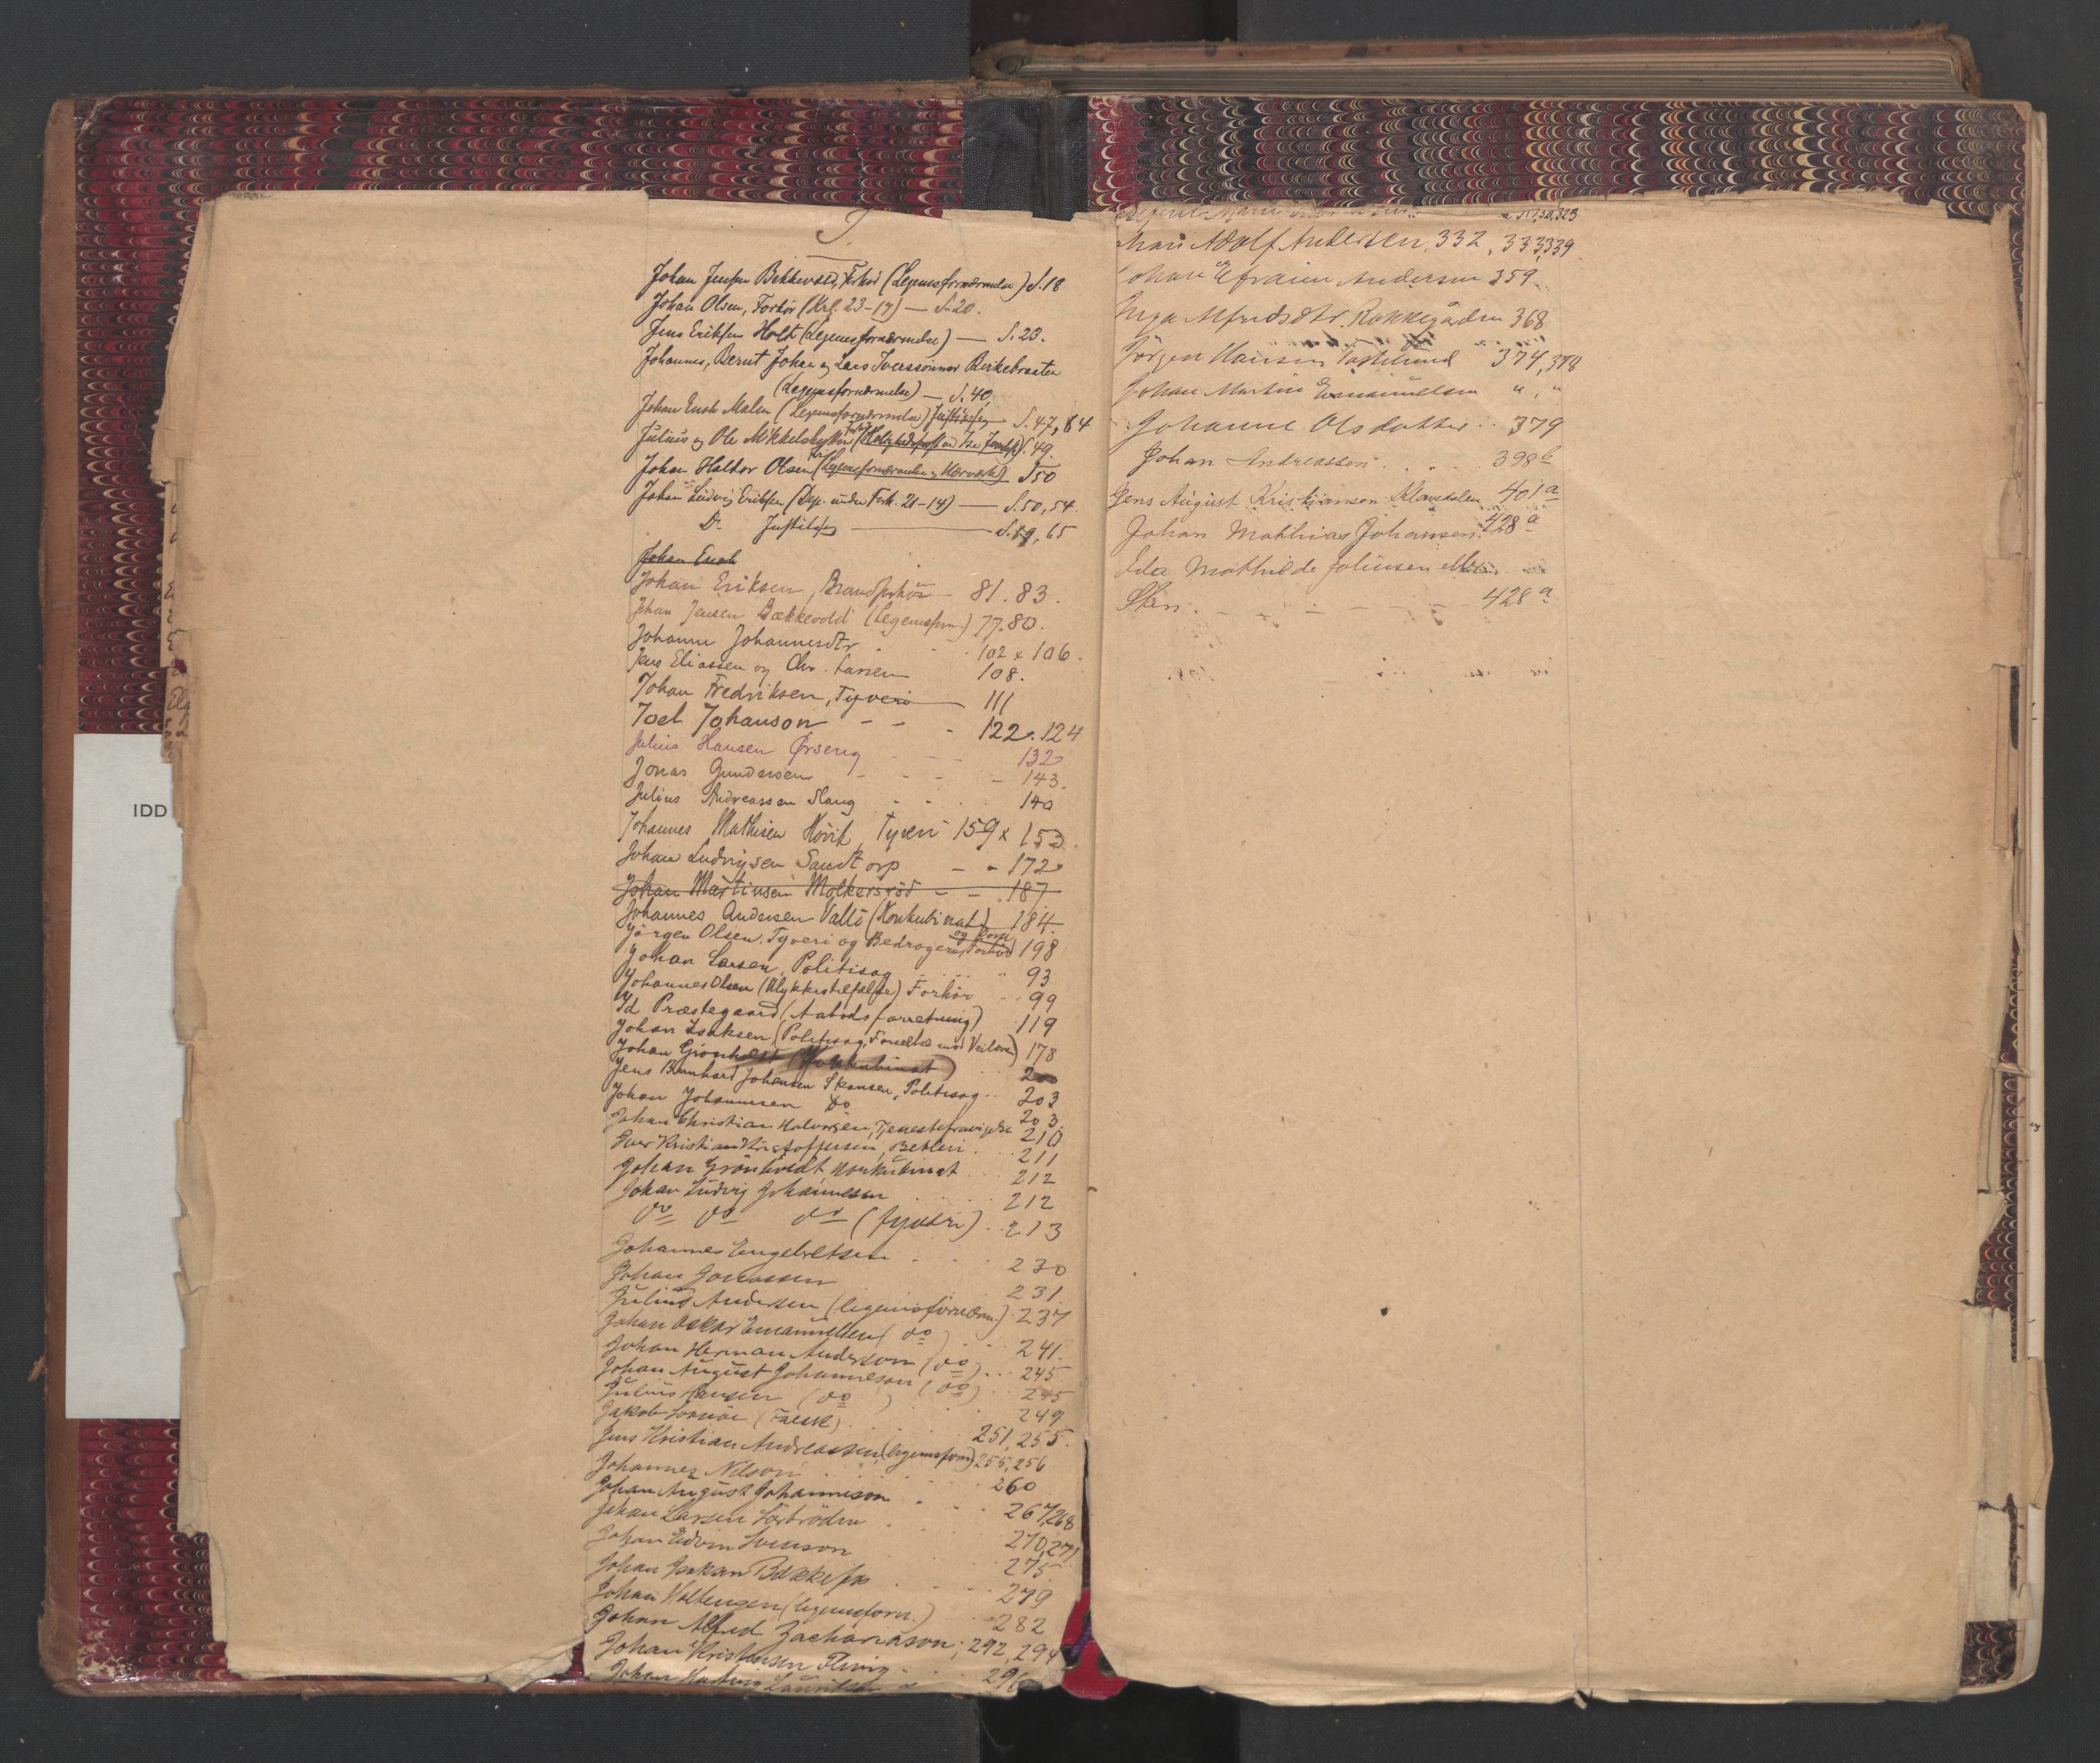 J.
Johan Jensen Bekkevold, Forhør (Legemsfornærmelse) S. 18
Johan Olsen, Forhør (Krl. 23-17) — S. 20.
Jens Eriksen Holt (Legemsfornærmelse) — S. 23.
Johannes, Bernt Johan og Lars Iverssønner Birkebraaten
(Legemsfornærmelse) — S. 40,
Johan Enok Malm (Legemsfornærmelse) Justitssag S. 47, 64
Julius og Ole Mikkelsen S. 49.
Johan Haldor Olsen (Legemsfornærmelse og Hærværk) S 50
Johan Ludvig Eriksen (Dep. under Forh. 21-14) — S. 50, 54.
Do Justitssag — S. 59, 65
Johan Enok
Johan Eriksen, Brandforhør - 81. 83.
Johan Jensen Bækkevold (Legemsforn.) 77. 80.
Johanne Johannesdtr . . 102 x 106.
Jens Eliassen og Chr. Larsen 108.
Johan Fredriksen, Tyveri 111
Joel Johanson - - - 122. 124
Julius Hansen Ørseng - - - 132
Jonas Gundersen - - - - 143.
Julius Andreassen Haug - - - 140
Johannes Mathisen Hövik, Tyveri 159 x 153.
Johan Ludvigsen Sandtorp - - 172
Johan Martinsen Molkersröd - - . 187
Johannes Andersen Vallö (Konkubinat) 184.
Jörgen Olsen. Tyveri og Bedrageri, Forhör 198
Johan Larsen, Politisag 93
Johannes Olsen (Ulykkestilfælde) Forhör 99
Id Præstegaard (Aabodsforretning) 119
Johan Isaksen (Politisag, Forseelse mod Veiloven) 178
Johan Grönholdt (Konkubinat) 200
Jens Bernhard Johansen Skansen, Politisag 203
Johan Johannesen Do 203.
Johan Christian Halvorsen, Tjenestefravigelse 210
Iver Kristian Kristoffersen, Betleri. 211
Johan Grönholdt Konkubinat 212
Johan Ludvig Johannesen 212
do do do (Tyveri) 213
Johannes Engebretsen 230
Johan Jonassen 231.
Julius Andersen (legemsfornærm.) 237
Johan Oskar Emanuelsen (do) 241.
Johan Herman Anderson (do) 245
Johan August Johanneson (do) 245
Julius Hansen (do) 249
Jakob (Falsk) 251, 255.
Jens Kristian Andreassen (legemsforn) 255, 256
Johannes Nilson 260
Johan August Johanneson 267, 268
Johan Larsen 270, 271
Johan Edvin Svenson 275
Johan Isaksen Bækkefos 279
Johan Holtengen (legemsforn.) 282
Johan Alfred Zachariason; 292, 294
Johan Kristensen 296
Johan
323
Adolf Andersen, 332, 333, 339
Johan Efraim Andersen 359.
Inga Alfredsdtr. Rokkegården 368
Jörgen Hansen 374, 378
Johan Martin Emanuelsen " "
Johanne Olsdatter . . 379
Johan Andreassen . . . 398 b
Jens August Kristianson Klavedalen 401 a
Johan Mathias Johansen. 428 a
Ida Mathilde Johnsen eller
Sten. - - - - - 428 a
IDD